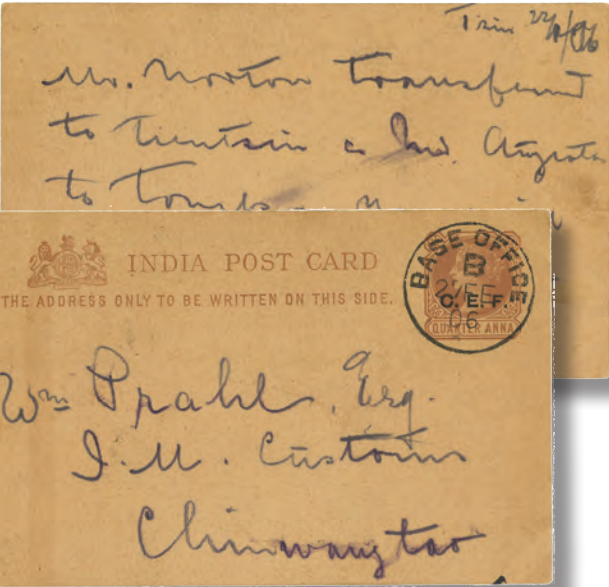 Tsin 22/2/06
Mr. Norton transferred
to Tientsin &
to
INDIA POST CARD
THE ADDRESS ONLY TO BE WRITTEN ON THIS SIDE.
BASE OFFICE
B
FE
C. E. F.
06
QUARTER ANNA
Wm Prahl, Esq.
I. M. Customs
Chinwangtao